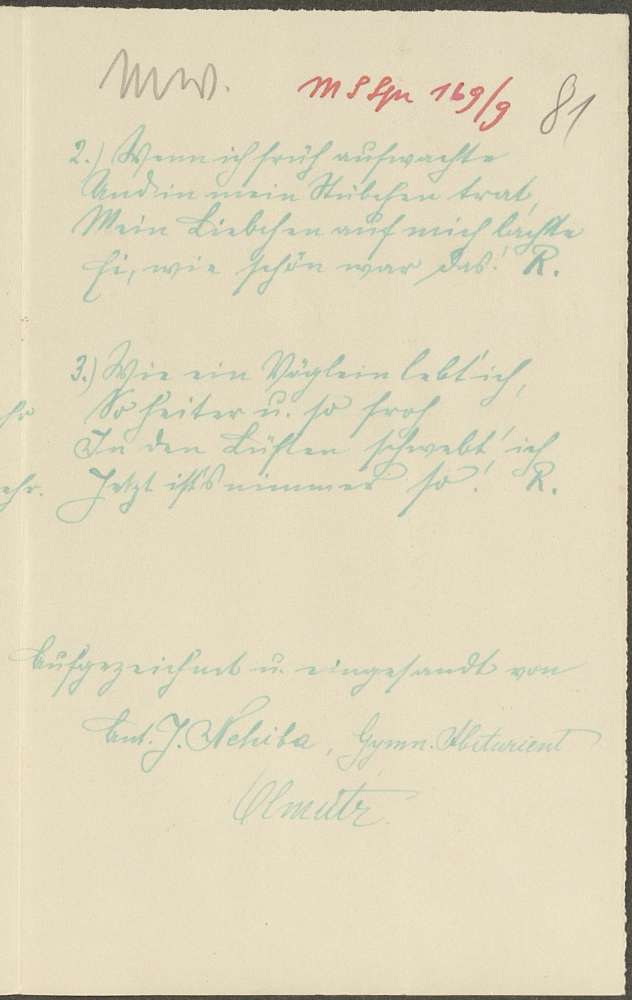 MW.
169/9
81
2.) Wenn ich früh aufwachte
Und in mein Stübchen trat,
Mein Liebchen auf mich lachte
Ei, wie schön war das! R.
3.) Wie ein Vöglein lebt' ich,
So heiter u. so froh
In den Lüften schwebt' ich
Jetzt ist's nimmer so! R.
Aufgezeichnet u. eingesandt von
Ant. J. Nehiba, Gymn. Abiturient
Olmütz.